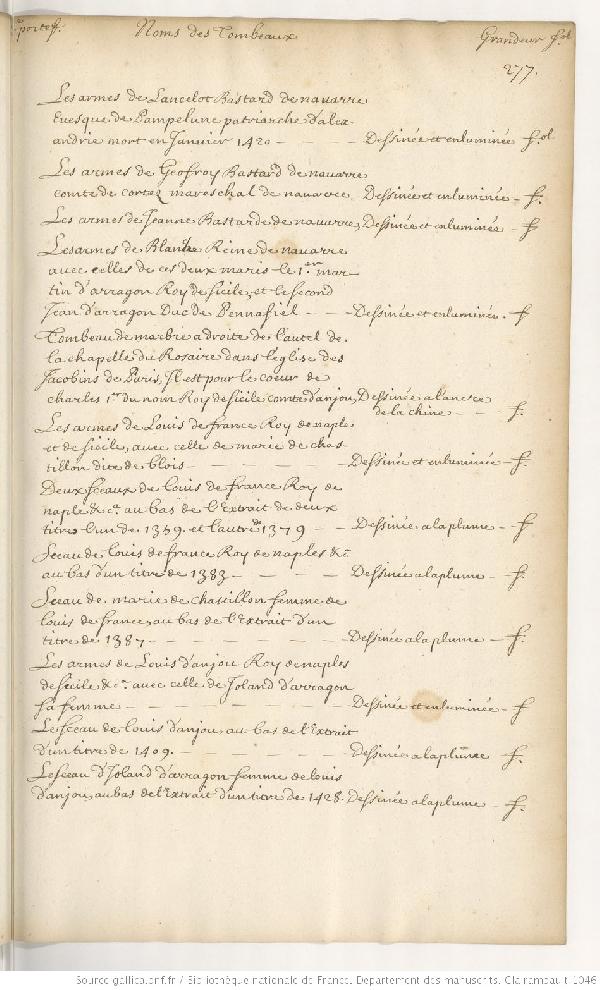 portef. Noms des Tombeaux Grandeur fol
277.
Les armes de Lancelot Bastard de navarre
Evesque de Pampelune patriarche d'alex-
andrie mort en Janvier 1420 - - - Dessinée et enluminée fol
Les armes de Geofroy Bastard de navarre
comte de cortez mareschal de navarre Dessinée et enluminée - f.
Les armes de Jeanne Bastarde de navarre, Dessinée et enluminée - f.
Les armes de Blanche Reine de navarre
avec celles de ces deux maris le 1.er mar-
tin d'arragon Roy de sicile, et le second
Jean d'arragon Duc de Pennafiel - - - Dessinée et enluminée. - f.
Tombeau de marbre a droite de l'autel de
la chapelle du Rosaire dans l'eglise des
Jacobins de Paris, Il est pour le coeur de
charles 1.er du nom Roy de sicile comte d'anjou, Dessinée a l'ancre
de la chine - - f.
Les armes de Louis de france Roy de naple
et de sicile, avec celle de marie de chas-
tillon dite de blois - - - - - Dessinée et enluminée - f.
Deux sceaux de louis de france Roy de
naple &c.a au bas de l'Extrait de deux
titres l'un de 1359. et l'autre de 1379 - - Dessinée a la plume - f.
Sceau de louis de france Roy de naples &c
au bas d'un titre de 1383 - - - - Dessinée a la plume - f.
Sceau de marie de chastillon femme de
louis de france, au bas de l'Extrait d'un
titre de 1387 - - - - - - Dessinée a la plume - f.
Les armes de Louis d'anjou Roy de naples
de sicile &c.a avec celle de Joland d'arragon
sa femme - - - - - - Dessinée et enluminée - f
Le sceau de louis d'anjou, au bas de l'Extrait
d'un titre de 1409. - - - - - Dessinée a la plume - f.
Le sceau d'Joland d'arragon femme de louis
d'anjou, au bas de l'Extrait d'un titre de 1428. Dessinée a la plume - f.
Source gallica.bnf.fr / Bibliothèque nationale de France. Département des manuscrits. Clairambault 1046